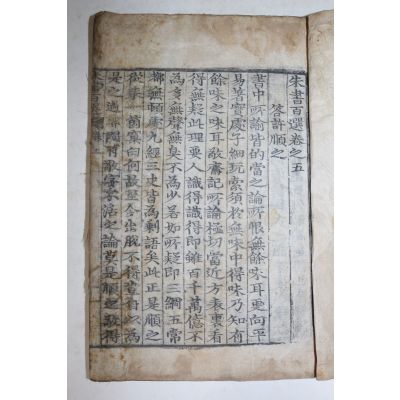 朱書百選卷之五
答許順之
書中所諭皆的當之論所恨無餘味耳更向平
易著實處子細玩索須於無味中得味乃知有
餘味之味耳敬齋記所論極切當近方表裏看
得無疑此理要人識得識得即雖百千萬億不
為多無聲無臭不為少若如所疑即三綱五常
都無頓處九經三史皆為剩語矣此正是順之
從來一箇窠臼何故至今出脫不得豈得以為
是之過耶
論莫是順之敬得